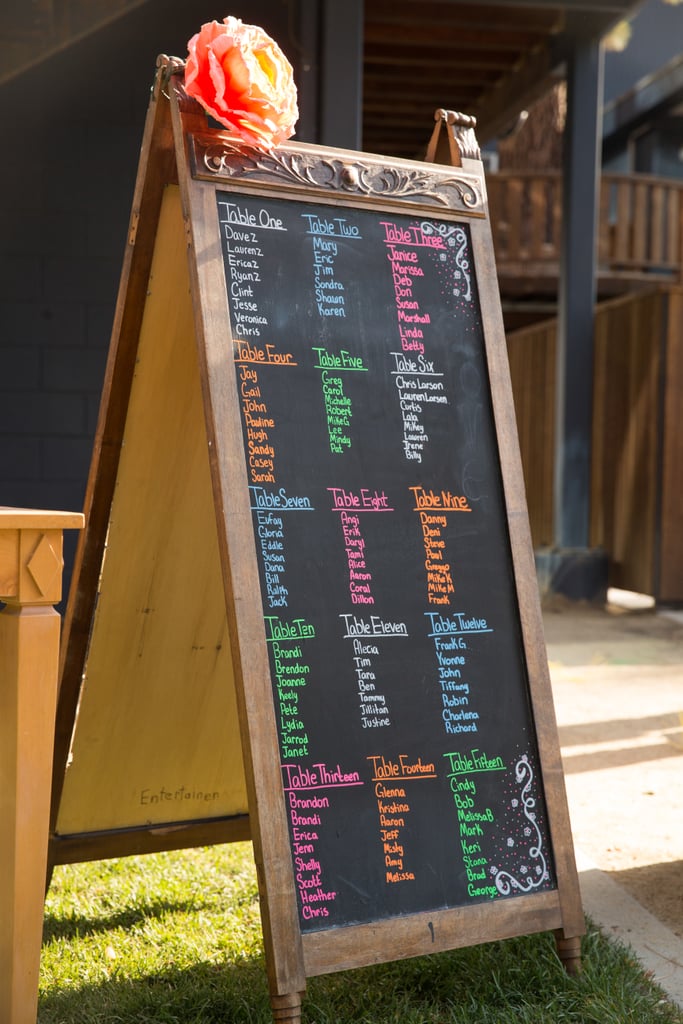 Table One
Dave Z
Lauren Z
Erica Z
Ryan Z
Clint
Jesse
Veronica
Chris
Table Two
Mary
Eric
Jim
Sondra
Shawn
Karen
Table Three
Janice
Marissa
Deb
Don
Susan
Marshall
Linda
Betty
Table Four
Jay
Gail
John
Pauline
Hugh
Sandy
Casey
Sarah
Table Five
Greg
Carol
Michelle
Robert
Mike G
Lee
Mindy
Pat
Table Six
Chris Larson
Lauren Larsen
Curtis
Lala
Mikey
Lauren
Irene
Billy
Table Seven
Eufay
Gloria
Eddie
Susan
Dana
Bill
Ralth
Jack
Table Eight
Angi
Erik
Daryl
Tami
Alice
Aaron
Coral
Dillon
Table Nine
Danny
Deni
Steve
Paul
Mike K
Mike M
Frank
Table Ten
Brandi
Brendon
Joanne
Keely
Pete
Lydia
Jarrod
Janet
Table Eleven
Alecia
Tim
Tara
Ben
Tammy
Jillian
Justine
Table Twelve
Frank G.
Yvonne
John
Tiffany
Robin
Charlena
Richard
Table Thirteen
Brandon
Brandi
Erica
Jenn
Shelly
Scott
Heather
Chris
Table Fourteen
Glenna
Kristina
Aaron
Jeff
Misty
Amy
Melissa
Table Fifteen
Cindy
Bob
Melissa B
Mark
Keri
Stana
Brad
George
Entertainen